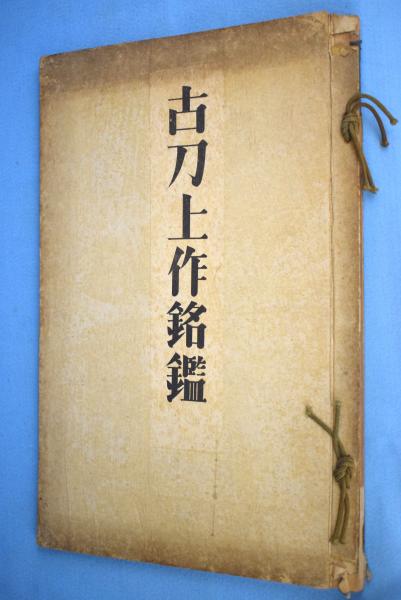 古刀上作銘鑑